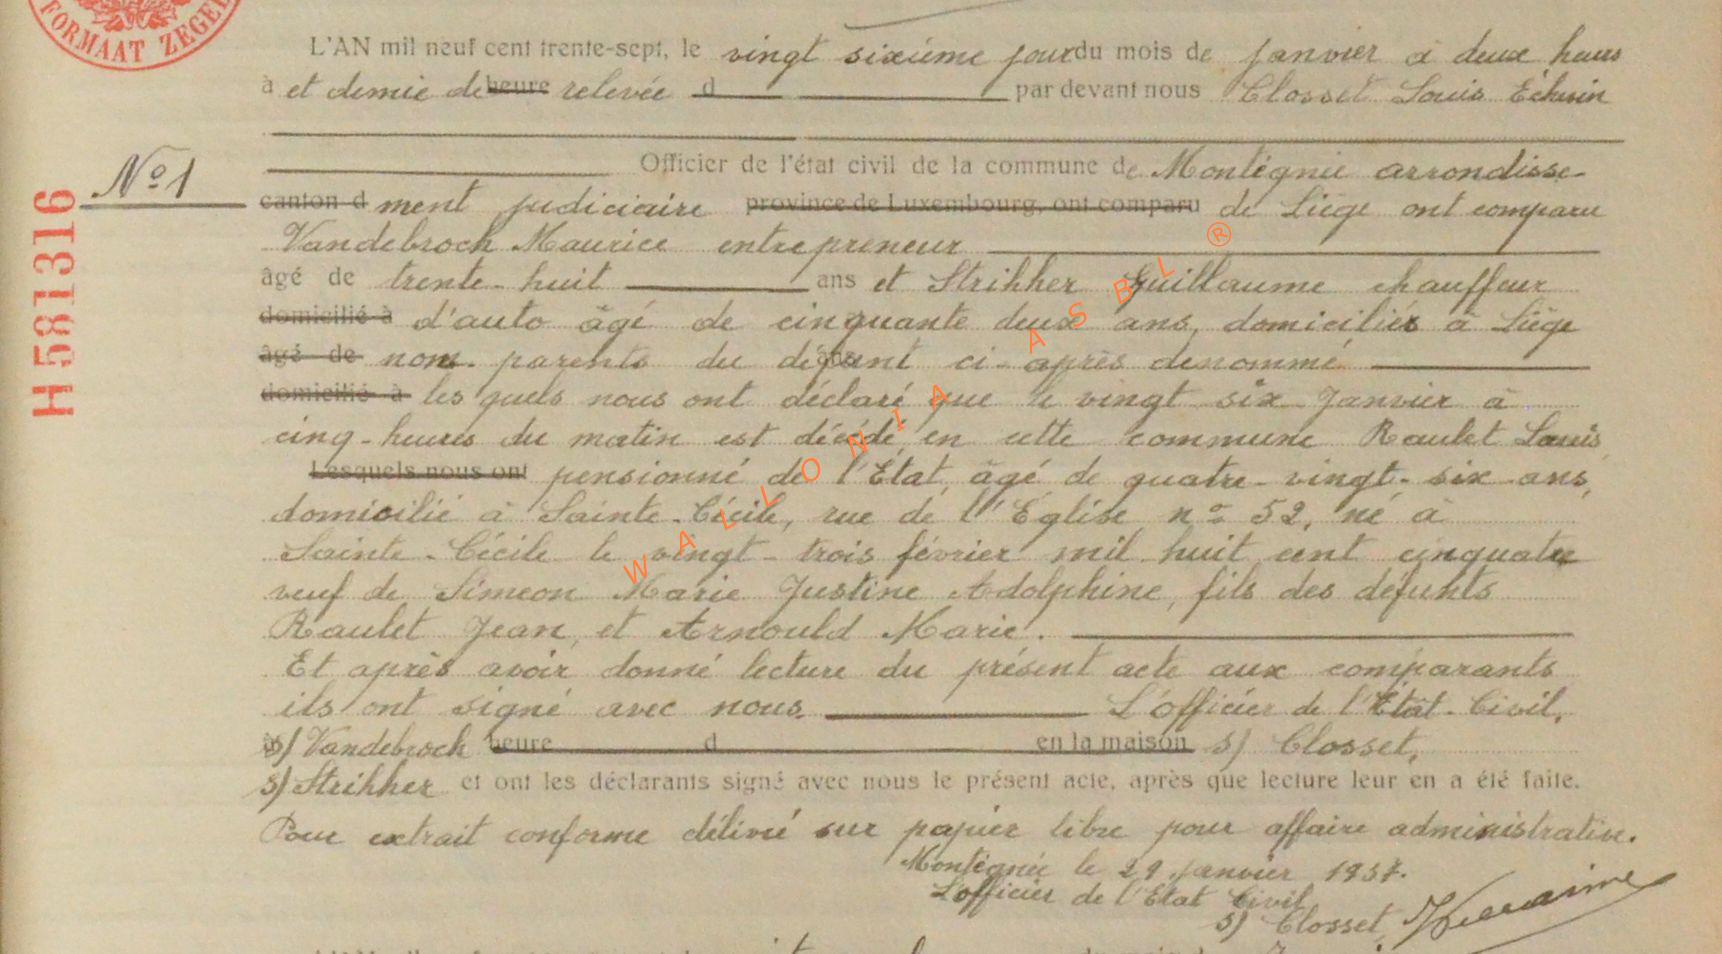 FORMAAT ZEGEL
L'AN mil neuf cent trente-sept, le vingt sixième jour du mois de Janvier à deux heures
à et demie de heure relevée d par devant nous Closset Louis Échevin
Officier de l'état civil de la commune de Montégnée arrondisse-
N° 1
canton d ment judiciaire province de Luxembourg, ont comparu de Liège ont comparu
Vandebroch Maurice entrepreneur
âgé de trente-huit ans et Strihher Guillaume chauffeur
domicilié à d'auto âgé de cinquante deux ans, domiciliés à Liège
âgé de non parents du défunt ans ci-après dénommé
domicilié à lesquels nous ont déclaré que le vingt six Janvier à
cinq heures du matin est décédé en cette commune Raulet Louis
Lesquels nous ont pensionné de l'État, âgé de quatre-vingt-six ans,
domicilié à Sainte-Cécile, rue de l'Église n° 52, né à
Sainte-Cécile le vingt-trois février mil huit cent cinquante
veuf de Simeon Marie Justine Adolphine, fils des défunts
Raulet Jean, et Arnould Marie.
Et après avoir donné lecture du présent acte aux comparants
ils ont signé avec nous. L'officier de l'État-Civil,
s) Vandebroch heure d en la maison s) Closset,
s) Strihher et ont les déclarants signé avec nous le présent acte, après que lecture leur en a été faite.
Pour extrait conforme délivré sur papier libre pour affaire administrative.
Montégnée le 29 Janvier 1937.
L'officier de l'État Civil
s) Closset,
H581316
WALLONIA ASBL ®